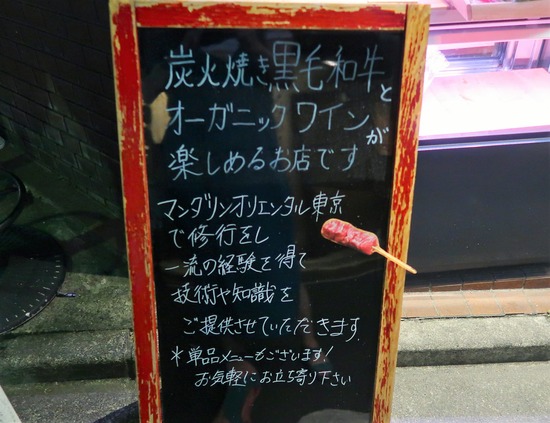 炭火焼き黒毛和牛と
オーガニックワインが
楽しめるお店です
マンダリンオリエンタル東京
で修行をし
一流の経験を得て
技術や知識を
ご提供させていただきます
*単品メニューもございます!
お気軽にお立ち寄り下さい